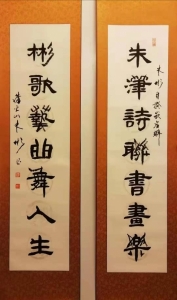 朱澤詩聯書畫樂
彬歌藝曲舞人生